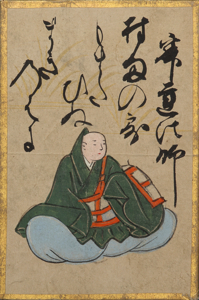 寂蓮法師
村雨の露
もまたひぬ
まきの